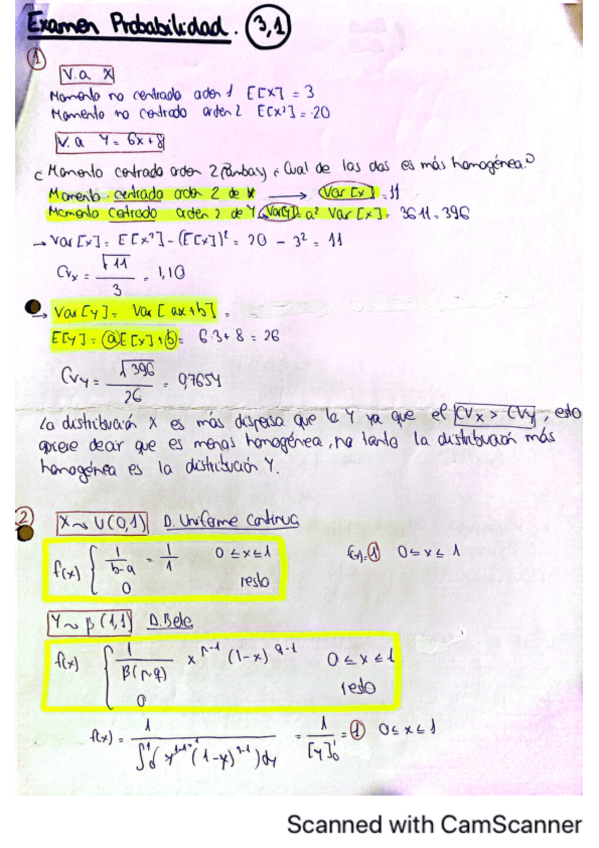 Examen Probabilidad. 3,1
1
V.a X
Momento no centrado orden 1 E[X] = 3
Momento no centrado orden 2 E[X²] = 20
V.a Y = 6x+8
¿Momento centrado orden 2 (Ambas) ¿Cual de las dos es más homogénea?
Momento centrado orden 2 de X → Var[X] = 11
Momento centrado orden 2 de Y → Var[Y] = a² Var[X] = 36·11 = 396
→ Var[X] = E[X²] - (E[X])² = 20 - 3² = 11
CVx = √11 / 3 = 1,10
→ Var[Y] = Var[ax+b] =
E[Y] = a E[X] + b = 6·3+8 = 26
CVy = √396 / 26 = 0,7654
La distribución X es más dispersa que la Y ya que el CVx > CVy, esto
quiere decir que es menos homogénea, no tanto la distribución más
homogénea es la distribución Y.
2
X ~ U(0,1) D. Uniforme Continua
f(x) { 1/(b-a) = 1/1 0≤x≤1 f(x)=1 0≤x≤1
0 resto
Y ~ β(1,1) D. Beta
f(x) { 1/β(p,q) x^(p-1) (1-x)^(q-1) 0≤x≤1
0 resto
f(x) = 1 / ∫₀¹ (y^(1-1) (1-y)^(1-1)) dy = 1/[y]₀¹ = 1 0≤x≤1
Scanned with CamScanner